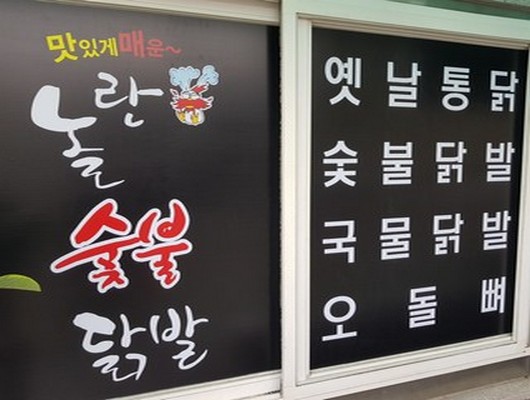 맛있게매운~
놀란
숯불
닭발
옛날통닭
숯불닭발
국물닭발
오돌뼈